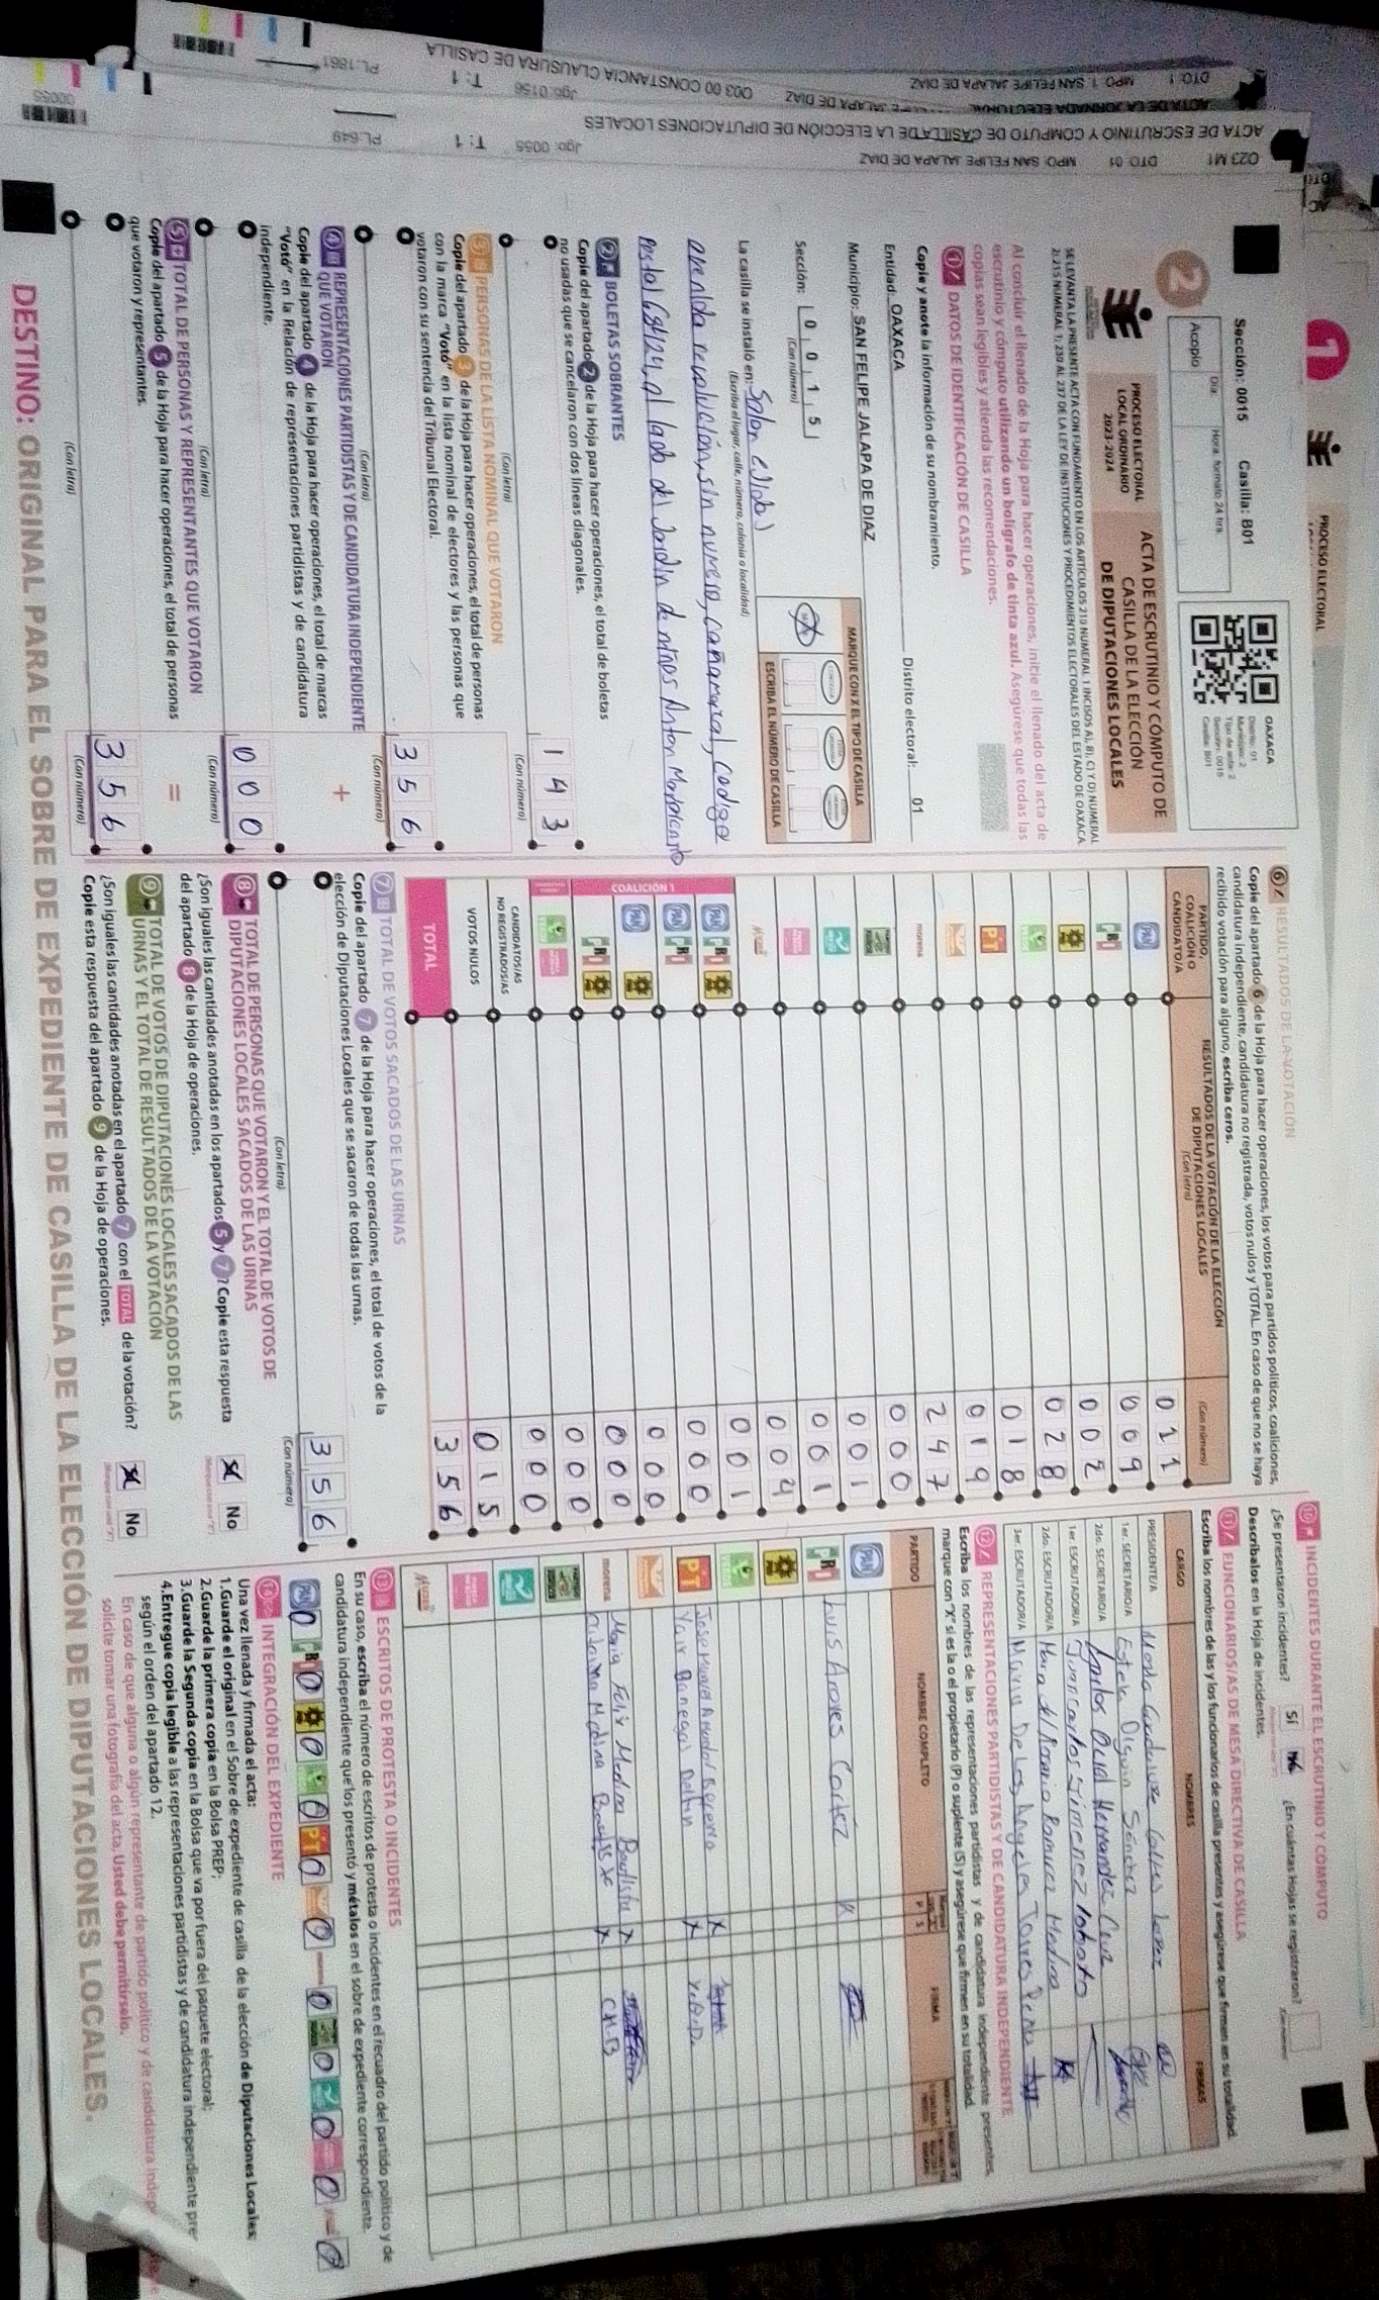 PROCESO ELECTORAL
Sección: 0015 Casilla: B01
OAXACA
Distrito: 01
Municipio: 2
Sección: 0015
Casilla: B01
2
Día: Hora: formato 24 hrs.
Acopio
PROCESO ELECTORAL
LOCAL ORDINARIO
2023-2024
ACTA DE ESCRUTINIO Y CÓMPUTO DE
CASILLA DE LA ELECCIÓN
DE DIPUTACIONES LOCALES
SE LEVANTA LA PRESENTE ACTA CON FUNDAMENTO EN LOS ARTÍCULOS 210 NUMERAL 1 INCISOS A), B), C) Y D) NUMERAL
2; 215 NUMERAL 1; 230 AL 237 DE LA LEY DE INSTITUCIONES Y PROCEDIMIENTOS ELECTORALES DEL ESTADO DE OAXACA
Al concluir el llenado de la Hoja para hacer operaciones, inicie el llenado del acta de
escrutinio y cómputo utilizando un bolígrafo de tinta azul. Asegúrese que todas las
copias sean legibles y atienda las recomendaciones.
1 DATOS DE IDENTIFICACIÓN DE CASILLA
Copie y anote la información de su nombramiento.
Entidad: OAXACA Distrito electoral: 01
Municipio: SAN FELIPE JALAPA DE DIAZ
MARQUE CON X EL TIPO DE CASILLA
ESCRIBA EL NÚMERO DE CASILLA
Sección: 0 0 1 5
(Con número)
La casilla se instaló en: Salon ejidal
(Escriba el lugar, calle, número, colonia o localidad)
avenida revolución, sin numero, cañamazal, codigo
Postal 68412, al lado del Jardin de niños
2 BOLETAS SOBRANTES
Copie del apartado 2 de la Hoja para hacer operaciones, el total de boletas
no usadas que se cancelaron con dos líneas diagonales.
1 4 3
(Con letra) (Con número)
3 PERSONAS DE LA LISTA NOMINAL QUE VOTARON
Copie del apartado 3 de la Hoja para hacer operaciones, el total de personas
con la marca "Votó" en la lista nominal de electores y las personas que
votaron con su sentencia del Tribunal Electoral.
3 5 6
(Con letra) (Con número)
+
4 REPRESENTACIONES PARTIDISTAS Y DE CANDIDATURA INDEPENDIENTE
QUE VOTARON
Copie del apartado 4 de la Hoja para hacer operaciones, el total de marcas
"Votó" en la Relación de representaciones partidistas y de candidatura
independiente.
0 0 0
(Con letra) (Con número)
=
5 TOTAL DE PERSONAS Y REPRESENTANTES QUE VOTARON
Copie del apartado 5 de la Hoja para hacer operaciones, el total de personas
que votaron y representantes.
3 5 6
(Con letra) (Con número)
6 RESULTADOS DE LA VOTACIÓN
Copie del apartado 6 de la Hoja para hacer operaciones, los votos para partidos políticos, coaliciones,
candidatura independiente, candidatura no registrada, votos nulos y TOTAL. En caso de que no se haya
recibido votación para alguno, escriba ceros.
PARTIDO, COALICIÓN O CANDIDATO/A
RESULTADOS DE LA VOTACIÓN DE LA ELECCIÓN DE DIPUTACIONES LOCALES
(Con letra) (Con número)
PAN 0 1 1
PRI 0 0 9
0 0 2
0 2 8
0 1 8
PT 0 1 9
morena 2 4 7
0 0 0
0 0 1
0 0 1
0 0 4
0 0 1
COALICIÓN 1
PAN PRI 0 0 0
PAN PRI 0 0 0
PAN 0 0 0
PRI 0 0 0
0 0 0
CANDIDATOS/AS NO REGISTRADOS/AS
VOTOS NULOS 0 1 5
TOTAL 3 5 6
7 TOTAL DE VOTOS SACADOS DE LAS URNAS
Copie del apartado 7 de la Hoja para hacer operaciones, el total de votos de la
elección de Diputaciones Locales que se sacaron de todas las urnas.
3 5 6
(Con letra) (Con número)
8 TOTAL DE PERSONAS QUE VOTARON Y EL TOTAL DE VOTOS DE
DIPUTACIONES LOCALES SACADOS DE LAS URNAS
¿Son iguales las cantidades anotadas en los apartados 5 y 7? Copie esta respuesta
del apartado 8 de la Hoja de operaciones.
No
9 TOTAL DE VOTOS DE DIPUTACIONES LOCALES SACADOS DE LAS
URNAS Y EL TOTAL DE RESULTADOS DE LA VOTACIÓN
¿Son iguales las cantidades anotadas en el apartado 7 con el TOTAL de la votación?
Copie esta respuesta del apartado 9 de la Hoja de operaciones.
No
10 INCIDENTES DURANTE EL ESCRUTINIO Y CÓMPUTO
¿Se presentaron incidentes? Sí No ¿En cuántas Hojas se registraron?
Descríbalos en la Hoja de incidentes.
11 FUNCIONARIOS/AS DE MESA DIRECTIVA DE CASILLA
Escriba los nombres de las y los funcionarios de casilla presentes y asegúrese que firmen en su totalidad.
CARGO NOMBRES FIRMAS
PRESIDENTE/A
1er. SECRETARIO/A Estela Olguin Sánchez
2do. SECRETARIO/A Carlos Hernandez Cruz
1er. ESCRUTADOR/A Juan carlos Jimenez lobato
2do. ESCRUTADOR/A Maria del Rosario Ramirez Medina
3er. ESCRUTADOR/A Maria De Los Angeles Torres
12 REPRESENTACIONES PARTIDISTAS Y DE CANDIDATURA INDEPENDIENTE
Escriba los nombres de las representaciones partidistas y de candidatura independiente presentes,
marque con "X" si es la o el propietario (P) o suplente (S) y asegúrese que firmen en su totalidad.
PARTIDO NOMBRE COMPLETO P S FIRMA
PAN
PRI Luis Aroves Cortéz
PT Jose Manuel Becerra
Yair Banegas
Maria Felix Medina Bautista X
morena Medina Bautista X C.M.B
13 ESCRITOS DE PROTESTA O INCIDENTES
En su caso, escriba el número de escritos de protesta o incidentes en el recuadro del partido político y de
candidatura independiente que los presentó y métalos en el sobre de expediente correspondiente.
PAN 0 PRI 0 0 0 PT 0 0 0 0 0 0 0
14 INTEGRACIÓN DEL EXPEDIENTE
Una vez llenada y firmada el acta:
1.Guarde el original en el Sobre de expediente de casilla de la elección de Diputaciones Locales;
2.Guarde la primera copia en la Bolsa PREP;
3.Guarde la Segunda copia en la Bolsa que va por fuera del paquete electoral;
4.Entregue copia legible a las representaciones partidistas y de candidatura independiente
según el orden del apartado 12.
En caso de que alguna o algún representante de partido político y de candidatura
solicite tomar una fotografía del acta, Usted debe permitírselo.
DESTINO: ORIGINAL PARA EL SOBRE DE EXPEDIENTE DE CASILLA DE LA ELECCIÓN DE DIPUTACIONES LOCALES.
023 M1 DTO: 01 MPO: SAN FELIPE JALAPA DE DIAZ Jgo: 0055 T: 1 PL:649
ACTA DE ESCRUTINIO Y COMPUTO DE CASILLA DE LA ELECCIÓN DE DIPUTACIONES LOCALES
ACTA DE LA JORNADA ELECTORAL
DTO: 1 MPO: 1 SAN FELIPE JALAPA DE DIAZ Jgo: 0156 T: 1 PL:1861
003 00 CONSTANCIA CLAUSURA DE CASILLA